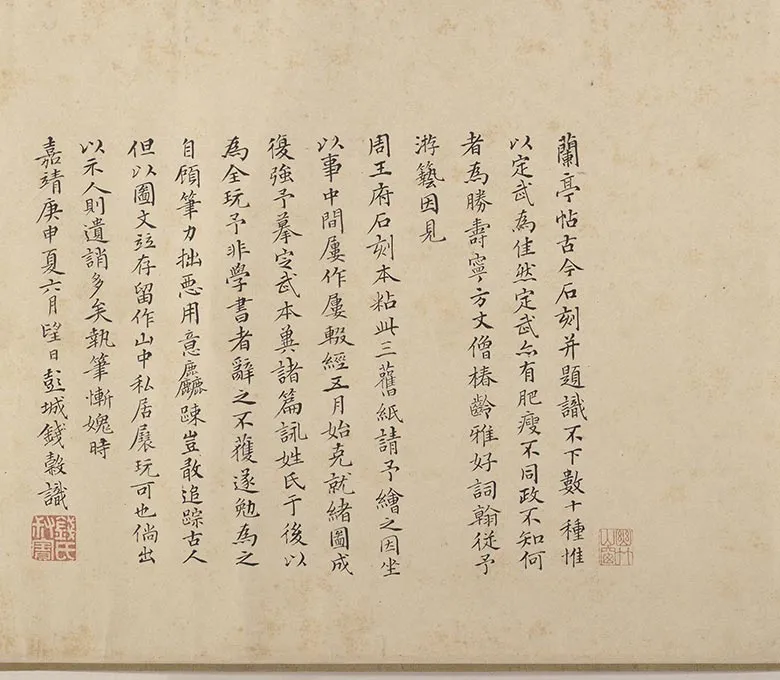 蘭亭帖古今石刻并題識不下數十種惟
以定武為佳然定武亦有肥瘦不同政不知何
者為勝壽寧方丈僧椿齡雅好詞翰從予
游藝因見
周王府石刻本粘此三舊紙請予繪之因坐
以事中間屢作屢輟經五月始克就緒圖成
復強予摹定武本兾諸篇訊姓氏于後以
為全玩予非學書者辭之不獲遂勉為之
自顧筆力拙惡用意麤踈豈敢追踪古人
但以圖文竝存留作山中私居展玩可也倘出
以示人則遺誚多矣執筆慚媿時
嘉靖庚申夏六月望日彭城錢穀識